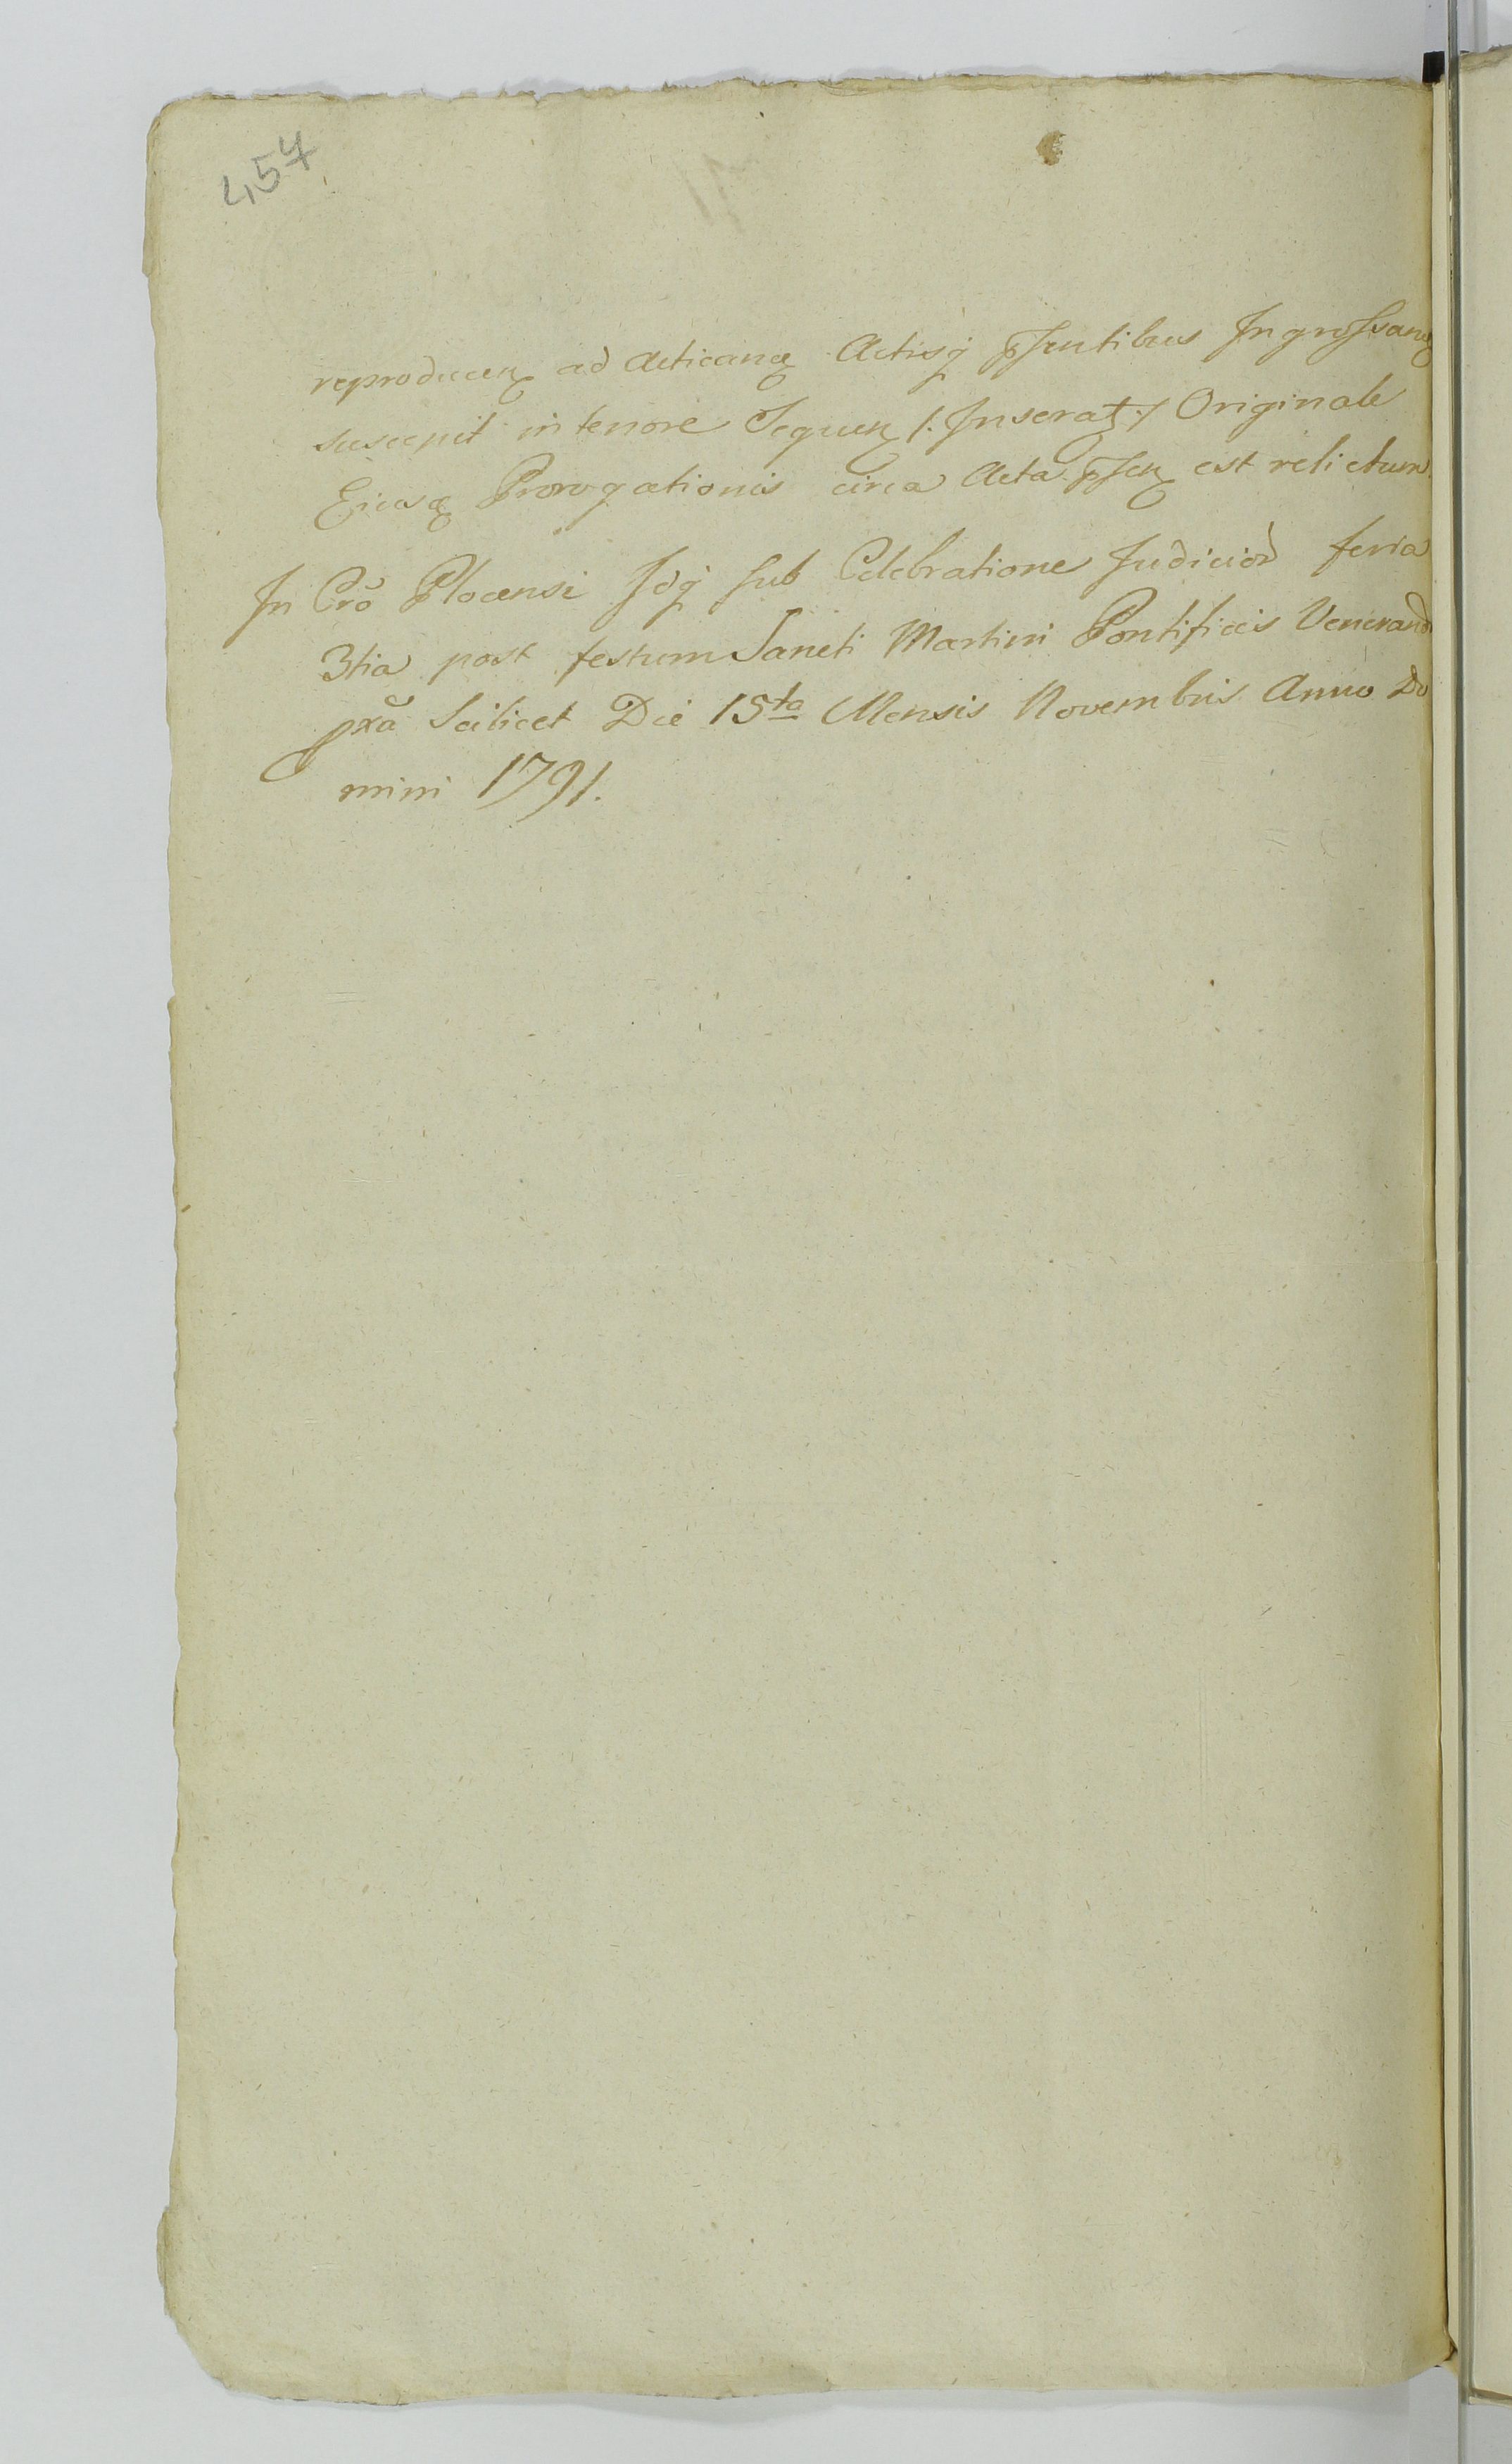 457
reproducen ad acticand Actisq pſentibus Ingroſsand
suscepit in tenore Sequen /: Inserat :/ Originale
Eiusd Prorogationis circa Acta pſen est relictum.
In Crõ Plocensi Idq sub Celebratione Judicior feria
3tia post festum Sancti Martini Pontificis Venerand
pxã Scilicet Die 15ta Mensis Novembris Anno Do
mini 1791.